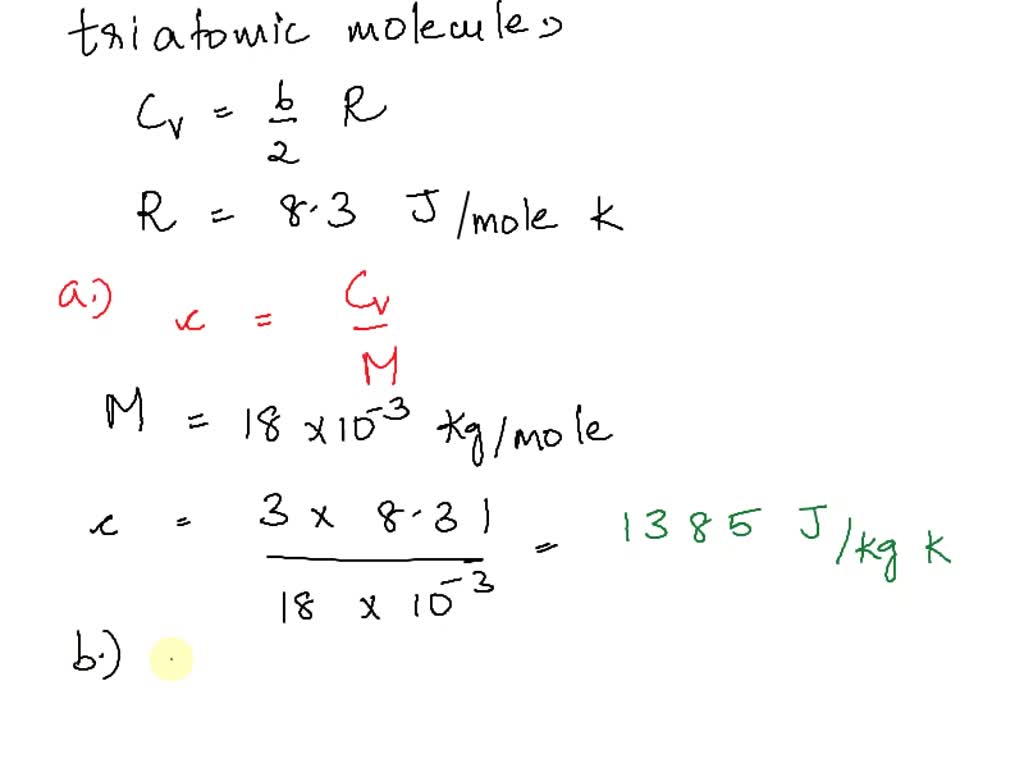 triatomic molecules
Cv = 6/2 R
R = 8.3 J/mole K
a.) c = Cv/M
M = 18 x 10^-3 kg/mole
c = 3 x 8.31 / 18 x 10^-3 = 1385 J/kg K
b.)